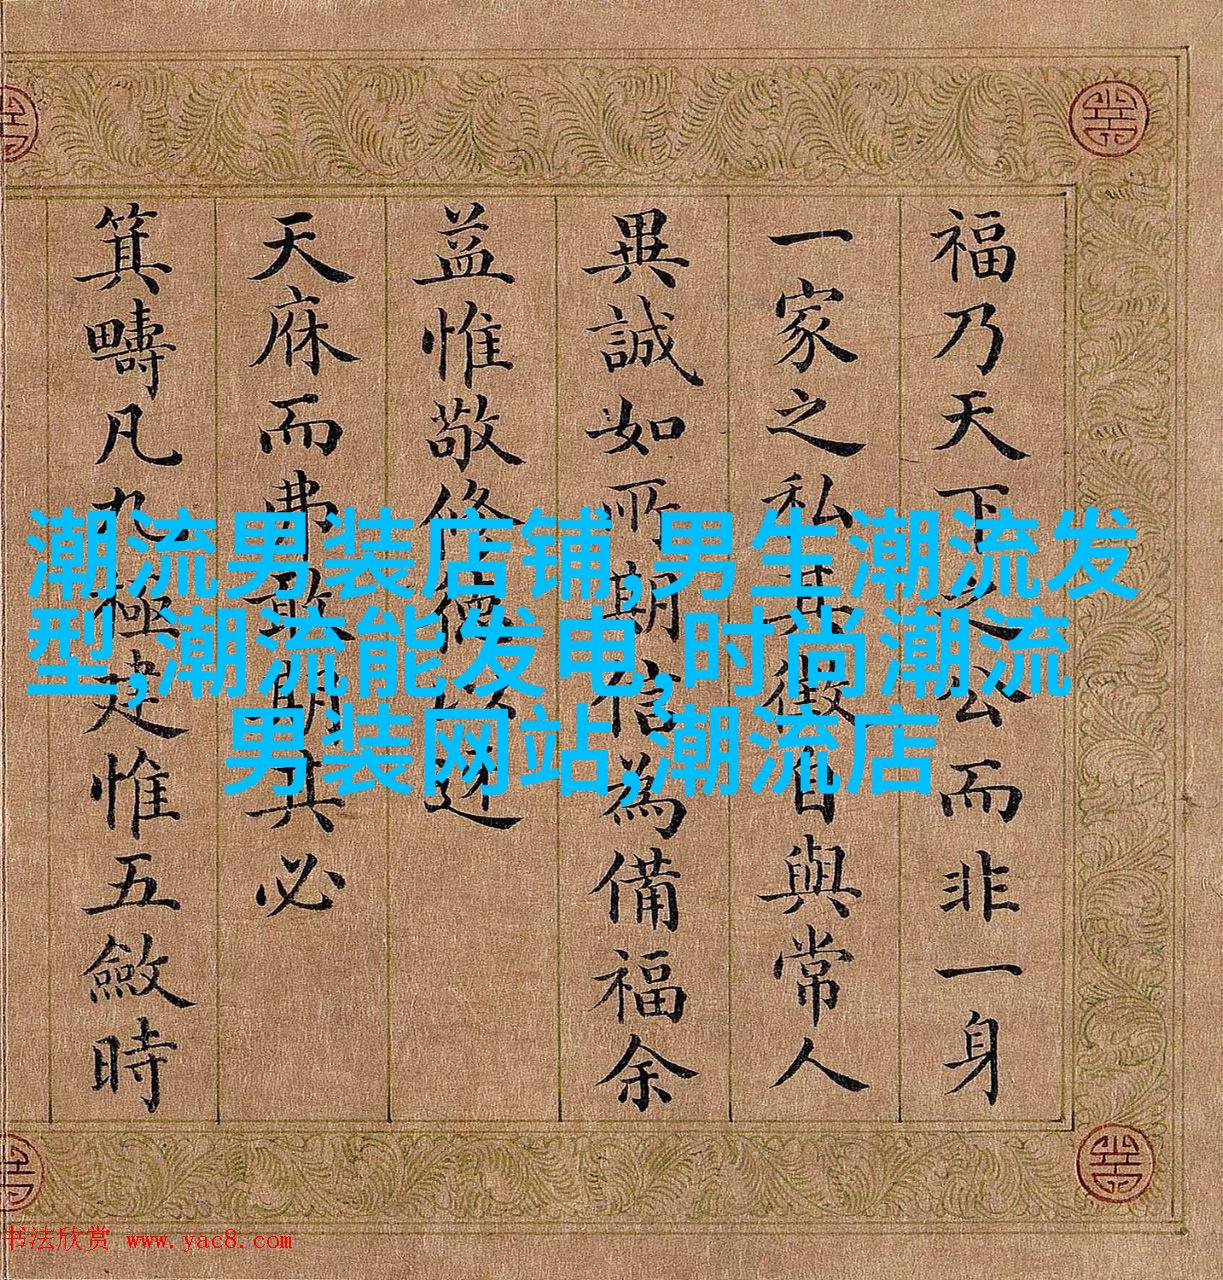 福乃天下之公而非一身
一家之私其徵自與常人
異誠如所期信為備福余
益惟敬修德以迓
天庥而弗敢期其必
箕疇凡九極建惟五斂時
潮流男装店铺,男生潮流发
型,潮流能发电,时尚潮流
男装网站,潮流店
书法欣赏 www.yac8.com